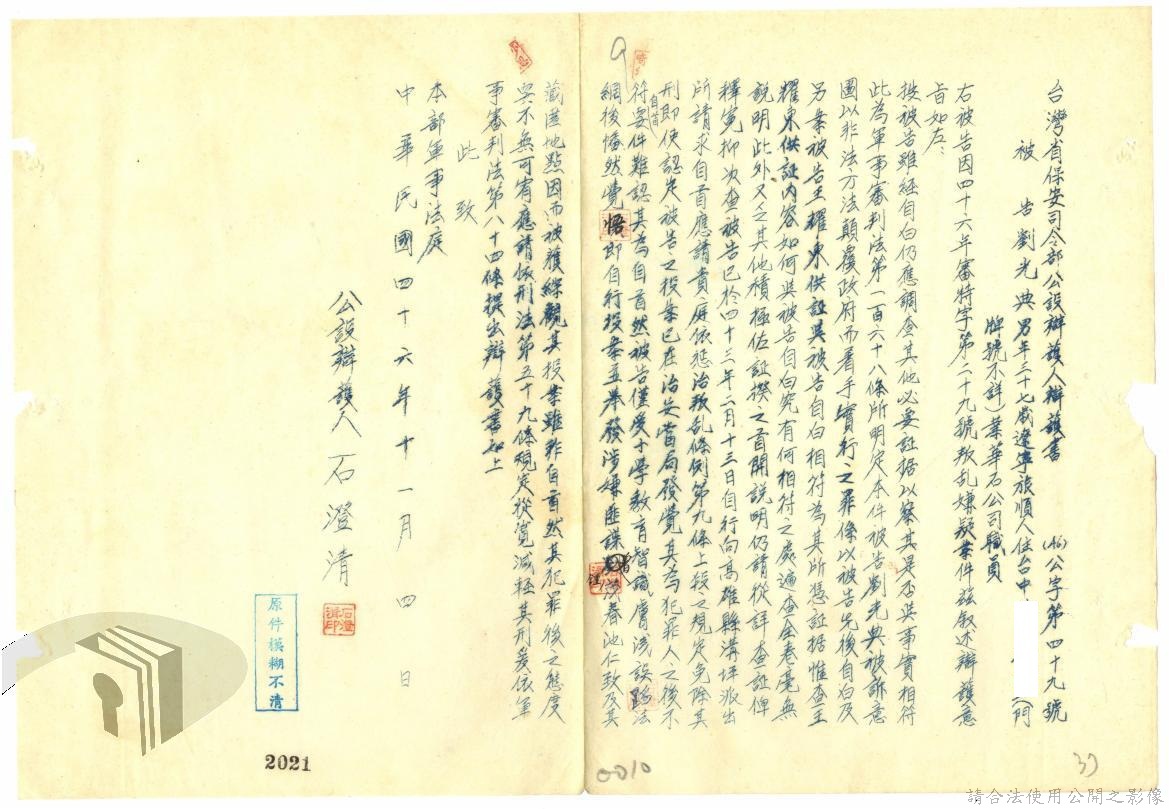 台灣省保安司令部公設辯護人辯護書
(46)公字第四十九號
被告劉光典男年三十七歲遼寧旅順人住台中
(門
牌號不詳)業華石公司職員
右被告因四十六年審特字第二十九號叛乱嫌疑案件茲敘述辯護意
旨如左:
按被告雖經自白仍應調查其他必要証据以察其是否與事實相符
此為軍事審判法第一百六十八條所明定本件被告劉光典被訴意
圖以非法方法顛覆政府而著手實行之罪係以被告先後自白及
另案被告王耀東供証與被告自白相符為其所憑証据惟查王
耀東供証內容如何與被告自白究有何相符之處遍查全卷毫無
說明此外又乏其他積極佐証揆之首開說明仍請從詳查証俾
釋冤抑次查被告已於四十三年二月十三日自行向高雄縣溝坪派出
所請求自首應請貴庭依惩治叛乱條例第九條上段之規定免除其
刑即使認定被告之投案已在治安當局發覺其為犯罪人之後不
符自首要件難認其為自首然被告僅受中學教育智識膚浅誤蹈法
網後幡然覺悟即自行投案並舉發涉嫌匪諜曾洪春池仁致及其
藏匿地點因而被獲綜觀其投案雖非自首然其犯罪後之態度
與不無可宥應請依刑法第五十九條規定從寬減輕其刑爰依軍
事審判法第八十四條提出辯護書如上
此致
本部軍事法庭
中華民國四十六年十一月四日
公設辯護人石澄清
原件模糊不清
2021
0010
37
請合法使用公開之影像